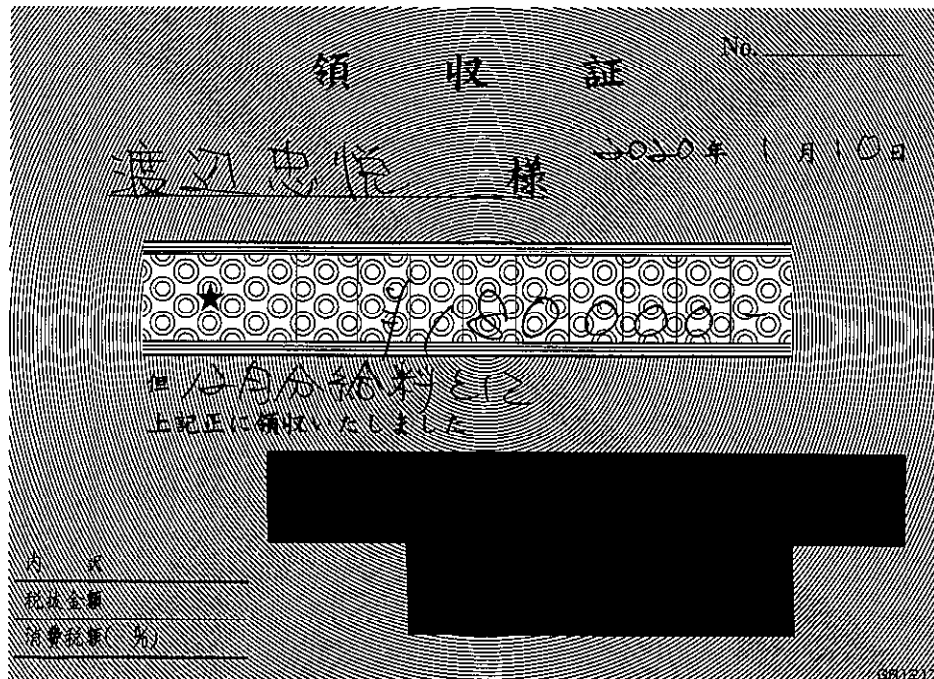 領収証
No.
渡辺忠悦 様
2020年 1月10日
★
但 12月分給料として
上記正に領収いたしました
内訳
税抜金額
消費税額( %)